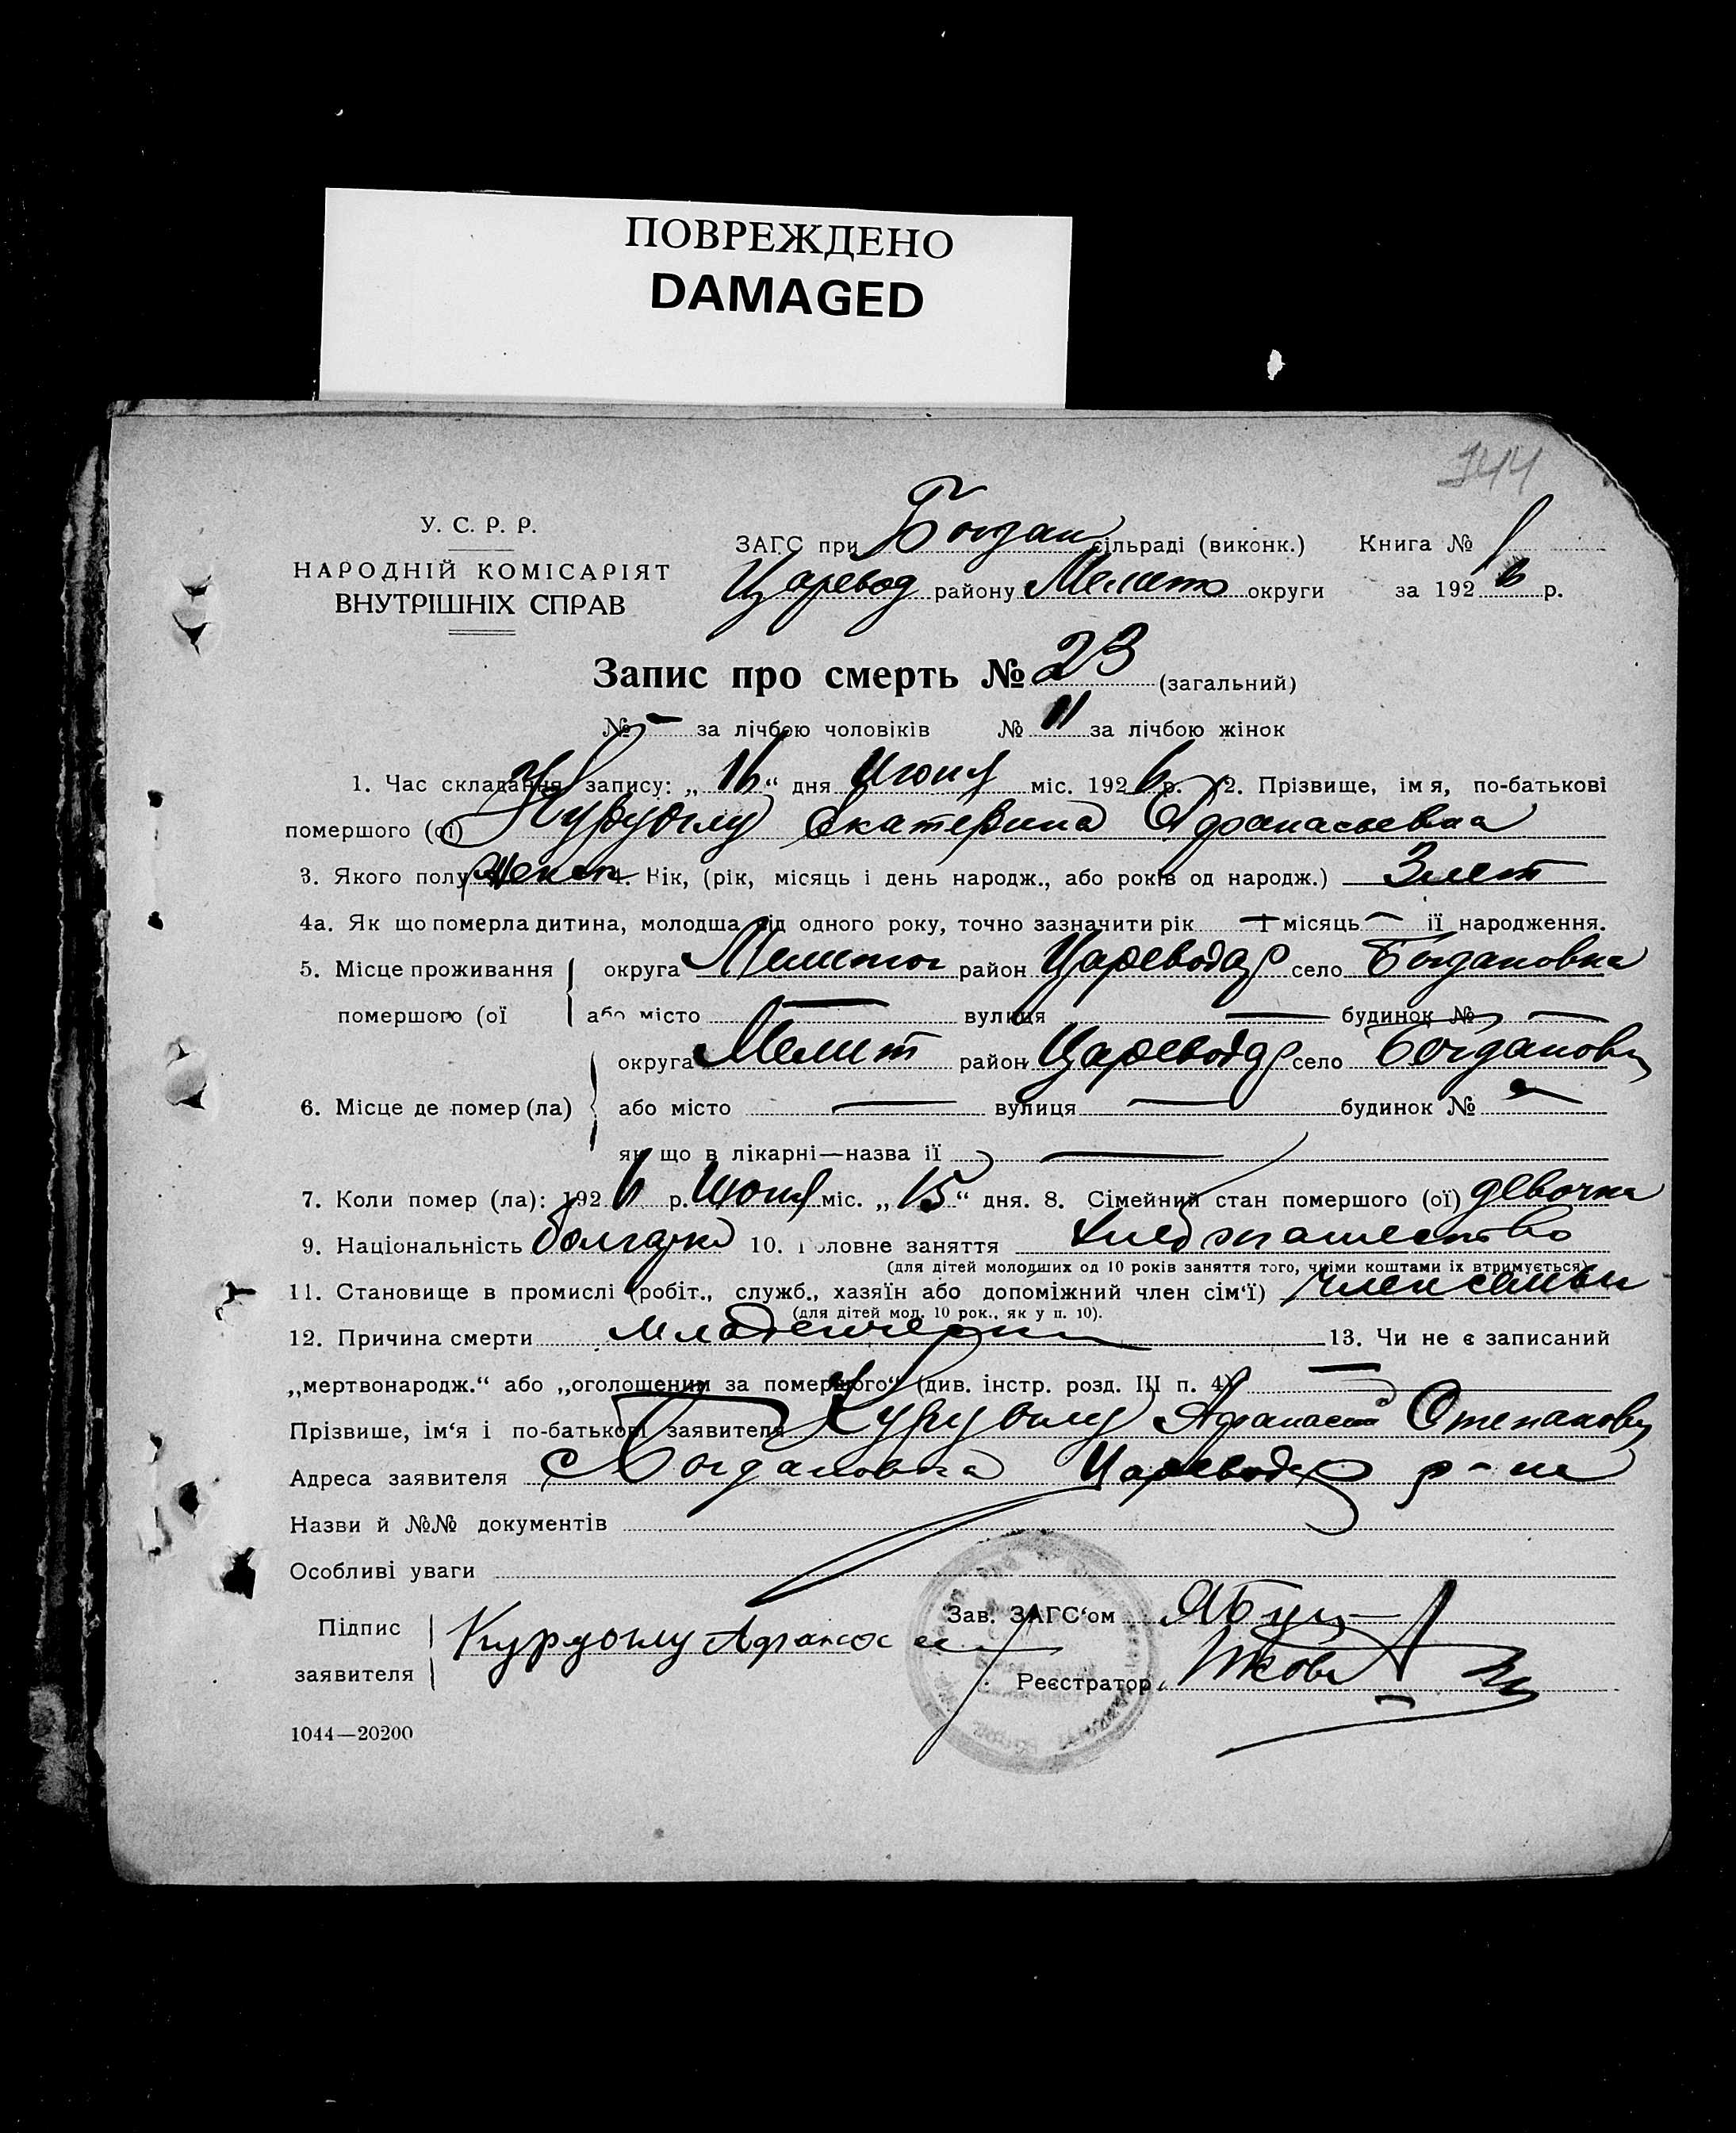 ПОВРЕЖДЕНО
DAMAGED
344
У. С. Р. Р.
НАРОДНІЙ КОМІСАРІЯТ
ВНУТРІШНІХ СПРАВ
ЗАГС при Богдан сільраді (виконк.) Книга № 1
Царевод району Мелито округи за 1926 р.
Запис про смерть № 23 (загальний)
№ – за лічбою чоловіків № 11 за лічбою жінок
1. Час складання запису: „16“ дня Июня міс. 1926 р. 2. Прізвище, імя, по-батькові
помершого (ої) Курдоглу Екатерина Афанасьевна
3. Якого полу женск 4. Вік, (рік, місяць і день народж., або років од народж.) 3 лет
4а. Як що померла дитина, молодша від одного року, точно зазначити рік — і місяць — її народження.
5. Місце проживання округа Мелитоп район Цареводар село Богдановка
помершого (ої або місто — вулиця — будинок № —
округа Мелит район Цареводар село Богдановк
6. Місце де помер (ла) або місто — вулиця — будинок № —
як що в лікарні—назва її —
7. Коли помер (ла): 1926 р. Июня міс. „15“ дня. 8. Сімейний стан помершого (ої) девочка
9. Національність болгарка 10. Головне заняття хлебопашество
(для дітей молодших од 10 років заняття того, чиїми коштами їх втримується)
11. Становище в промислі (робіт., служб., хазяїн або допоміжний член сім‘ї) член семьи
(для дітей мол. 10 рок., як у п. 10).
12. Причина смерти младенческая 13. Чи не є записаний
„мертвонародж.“ або „оголошеним за помершого“ (див. інстр. розд. III п. 4) —
Прізвище, ім‘я і по-батькові заявителя Курдоглу Афанасий Степанович
Адреса заявителя с Богдановка Цареводар р-на
Назви й №№ документів
Особливі уваги
Підпис
заявителя Курдоглу Афанас
Зав. ЗАГС‘ом
Реєстратор
1044—20200